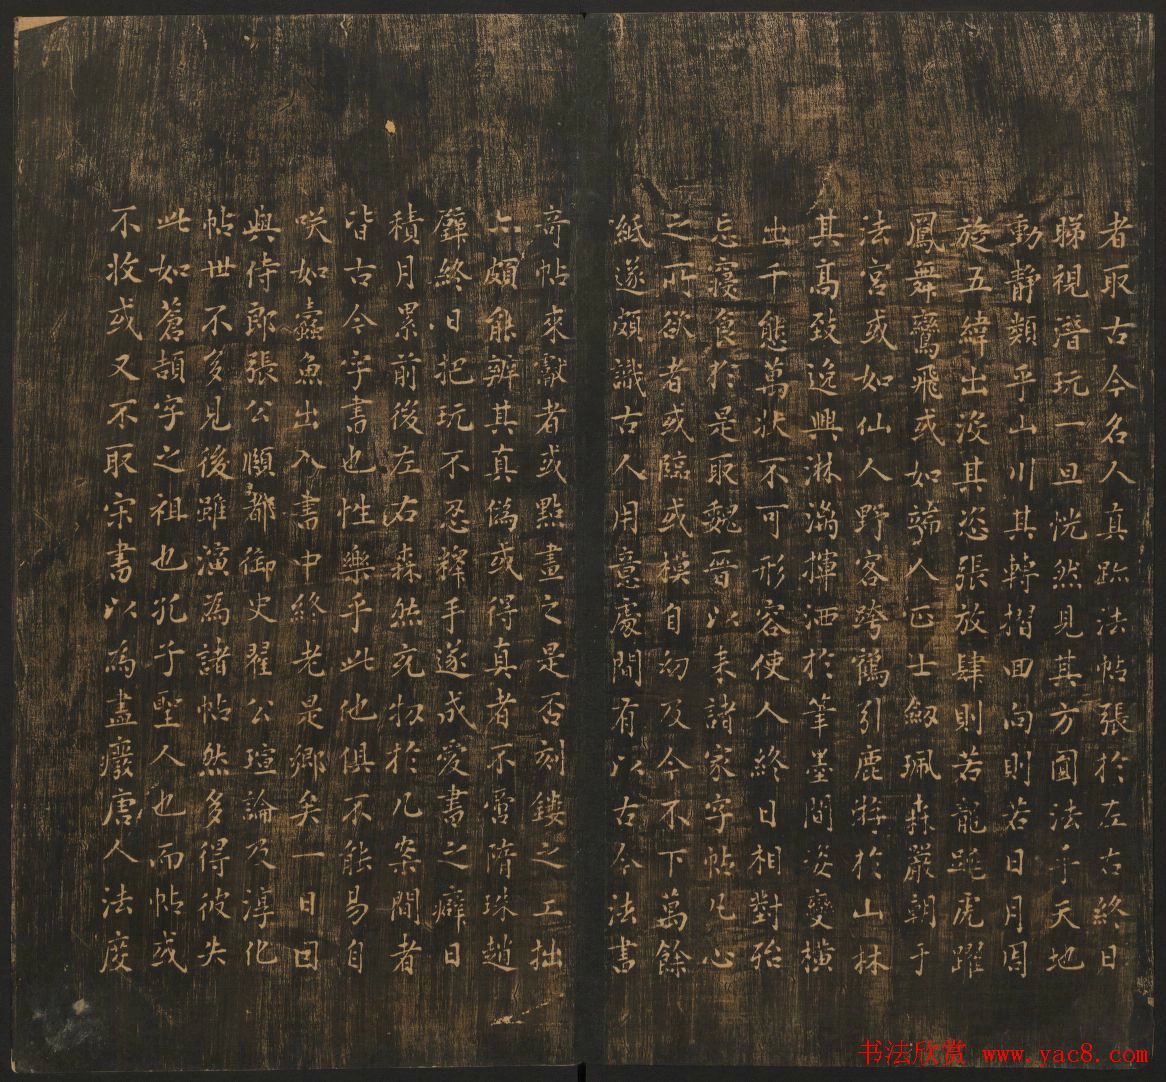 者取古今名人真跡法帖張於左右終日
睇視潛玩一旦恍然見其方圓法乎天地
動靜類乎山川其轉摺回向則若日月周
旋五緯出沒其恣張放肆則若龍跳虎躍
鳳舞鸞飛或如端人正士劔珮森嚴朝于
法宮或如仙人野客跨鶴引鹿遊於山林
其髙致逸興淋漓揮洒於筆墨間姿變橫
出千態萬狀不可形容使人終日相對殆
忘寢食於是取魏晉以来諸家字帖凡心
之所欲者或臨或模自㓜及今不下萬餘
紙遂頗識古人用意處間有以古今法書
奇帖來獻者或㸃畫之是否刻鏤之工拙
亦頗能辨其真僞或得真者不啻隋珠趙
璧終日把玩不忍釋手遂成愛書之癖日
積月累前後左右森然充牣於几案間者
皆古今字書也性樂乎此他俱不能易自
咲如蠹魚出入書中終老是鄉矣一日因
與侍郎張公頤都御史翟公瑄論及淳化
帖世不多見後雖演為諸帖然多得彼失
此如蒼頡字之祖也孔子聖人也而帖或
不收或又不取宋書以為盡癈唐人法度
书法欣赏 www.yac8.com